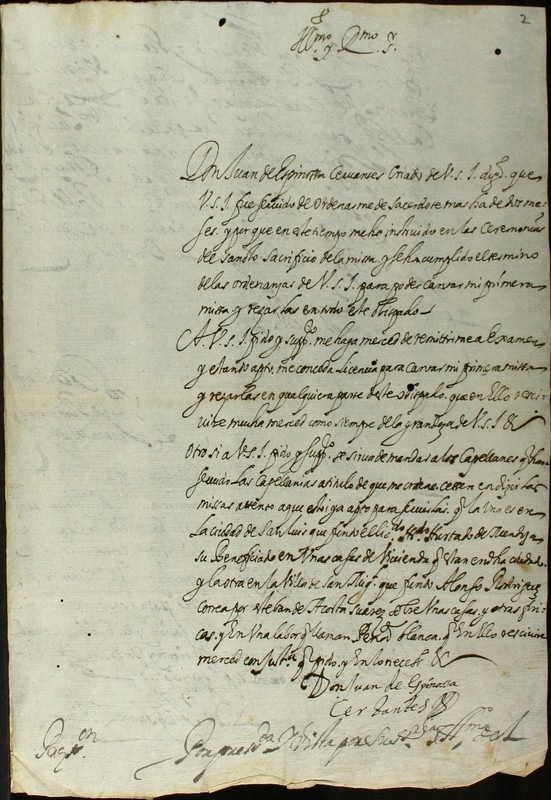 2
Yll.mo y R.mo S.r
Don Juan de Espinossa Cervantes Criado de V.S.I. digo que
V.S.I. fue servido de ordenarme de Sacerdote mas ha de dos me-
ses. y por que en este tiempo me he instruido en las Ceremonias
del Sancto Sacrificio de la missa. y se ha cumplido el termino
de las ordenanzas de V.S.I. para poder cantar mi primera
missa y rezarlas en todo este obispado
A. V.S.I. pido y supp.co me haga merced de remitirme a Examen
y estando apto. me conceda Licencia para cantar mi primera missa
y rezarlas en qualquiera parte deste obispado. que en Ello reci-
vire mucha merced como siempre de la grandeza de V.S.I &
Otrosi a V.S.I. pido y supp.co se sirva de mandar a los Capellanes q han
servido las Capellanias a titulo de que me ordene. cessen en dezir las
missas attento a que estoi ya apto para servirlas. q la una es en
La ciudad de San Luis que fundo el lic.do Hurtado de Mendoza
su Beneficiado en Unas casas de Vivienda q estan en dha ciudad.
y la otra en la Villa de San Mig.l que fundo Alonso Rodriguez
Correa por Esteban de Acosta Suarez sobre Unas casas. y otras fin-
cas. y En Una labor q llaman Peña blanca. q En Ello recivire
merced con Just.a q pido. y En lo necess.o &
Don Juan de Espinossa
Cervantes